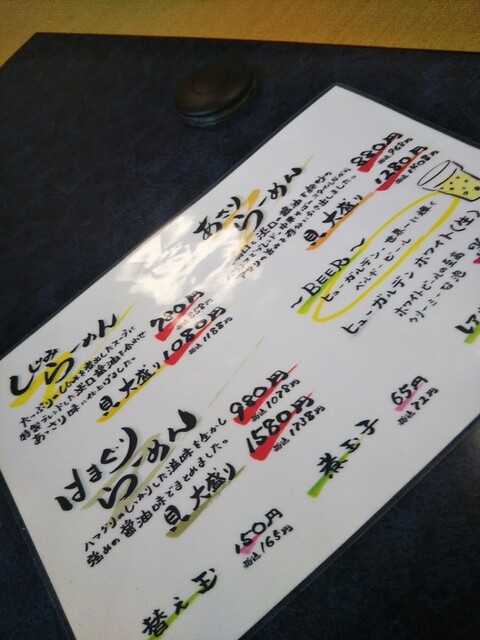 あさり
らーめん
880円
税込968円
貝 大盛り 1280円
税込1408円
～BEER～
世界一に輝く
ベルギービール
ヒューガルデン ホワイト(生)
ホワイトビールの至高
クリーミーな泡
しじみ
らーめん
780円
税込858円
たっぷりのしじみを使用したスープに
特製ブレンドした淡口醤油を合わせ
あっさり味に仕上げました。
貝 大盛り 1080円
税込1188円
はまぐり
らーめん
980円
税込1078円
ハマグリのしっかりした滋味を生かし
強めの醤油味でまとめました。
貝 大盛り 1580円
税込1738円
煮玉子 65円
税込72円
替え玉 150円
税込165円